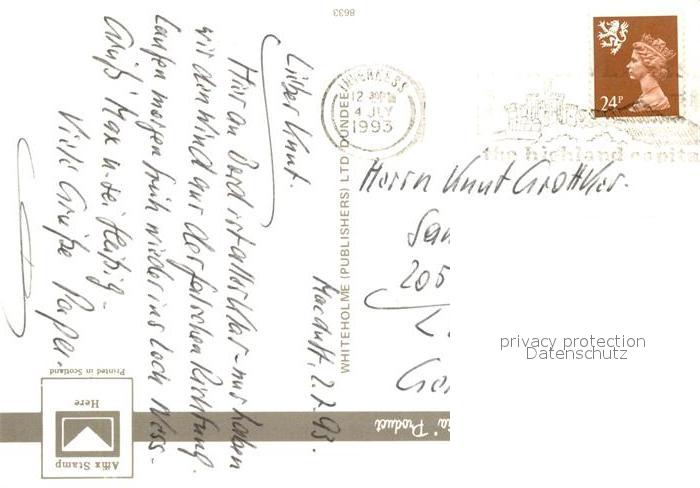 Macduff. 2.7.93.
Lieber Knut.
Hier an Bord ist alles klar - nur haben
wir den Wind aus der falschen Richtung.
Laufen morgen früh wieder ins Loch Ness -
Grüß Max u. sei fleißig -
Viele Grüße Papa.
8633
WHITEHOLME (PUBLISHERS) LTD DUNDEE
INVERNESS
12
4 JLY
1993
the highland capita
24P
Herrn Knut Grottker.
San
205
Ge
privacy protection
Datenschutz
Product
Printed in Scotland
Affix Stamp
Here